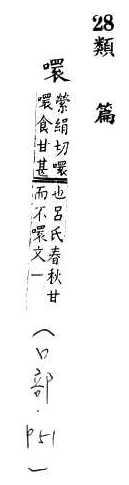 28
類篇
嚾
縈絹切嚾也呂氏春秋甘
嚾食甘甚而不嚾文一
(口部·P51)